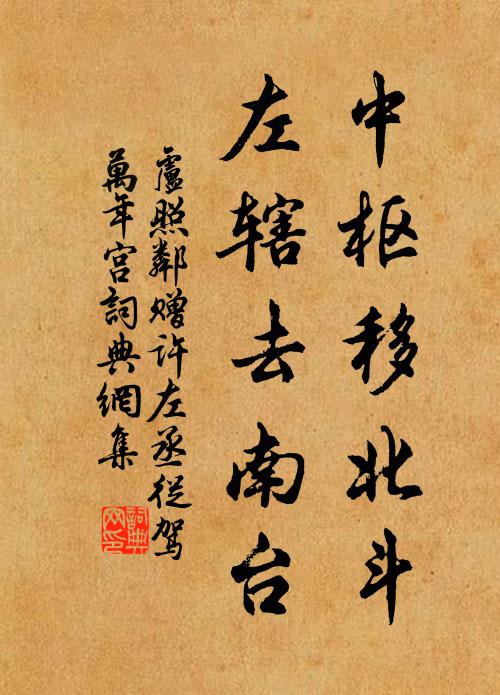 中枢移北斗
左辖去南台
盧照鄰贈许左丞從駕
萬年宮詞典網集
詞典网印